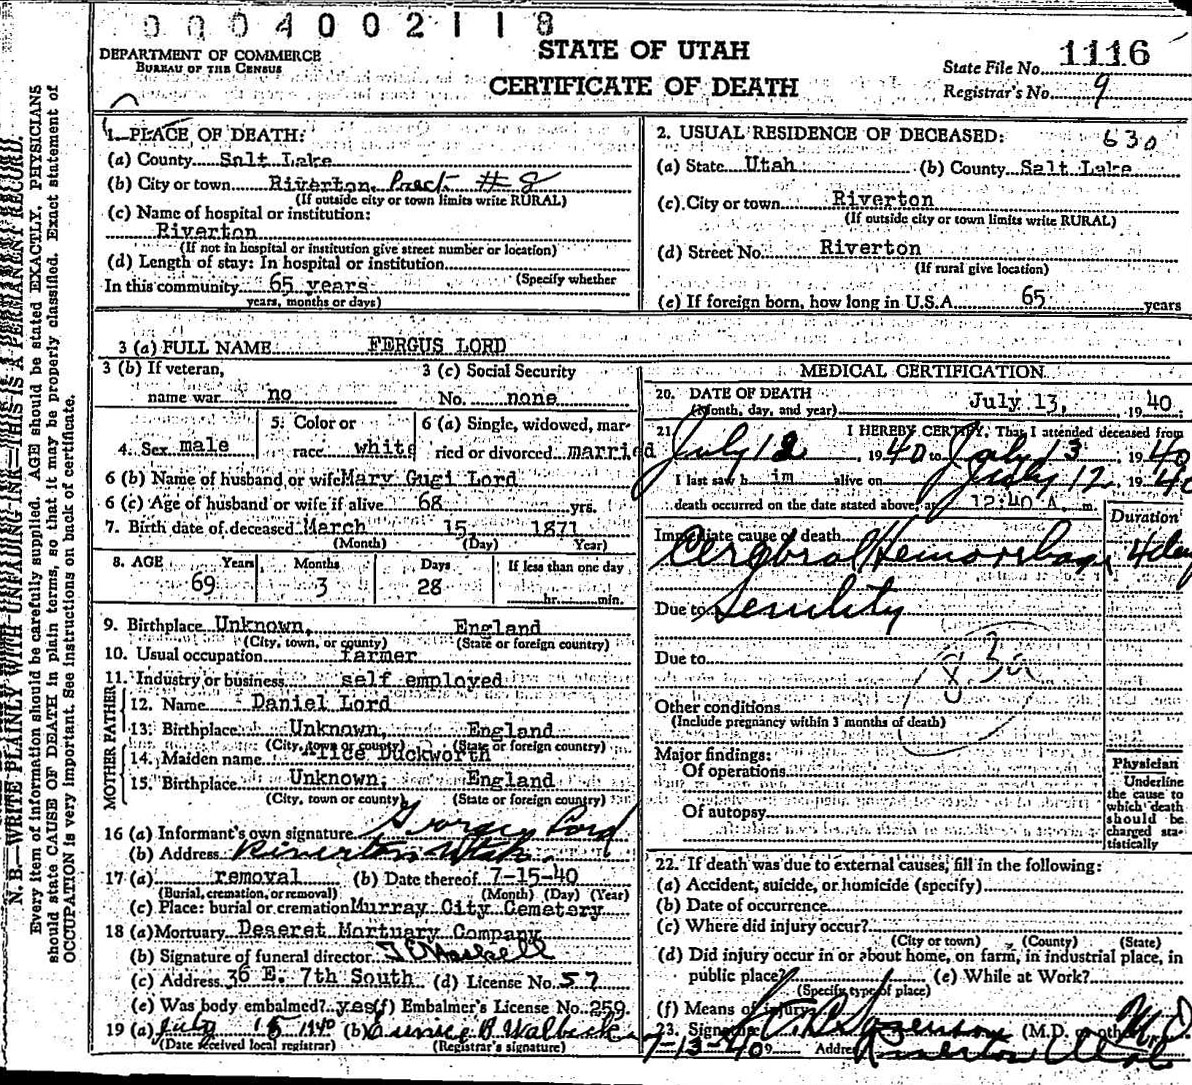 0004002118
DEPARTMENT OF COMMERCE
BUREAU OF THE CENSUS
STATE OF UTAH
CERTIFICATE OF DEATH
State File No. 1116
Registrar's No. 9
N. B.—WRITE PLAINLY WITH UNFADING INK—THIS IS A PERMANENT RECORD.
Every item of information should be carefully supplied. AGE should be stated EXACTLY. PHYSICIANS
should state CAUSE OF DEATH in plain terms, so that it may be properly classified. Exact statement of
OCCUPATION is very important. See instructions on back of certificate.
1. PLACE OF DEATH:
(a) County Salt Lake
(b) City or town Riverton, Prect. #8
(If outside city or town limits write RURAL)
(c) Name of hospital or institution:
Riverton
(If not in hospital or institution give street number or location)
(d) Length of stay: In hospital or institution
(Specify whether
In this community 65 years
years, months or days)
2. USUAL RESIDENCE OF DECEASED: 630
(a) State Utah (b) County Salt Lake
(c) City or town Riverton
(If outside city or town limits write RURAL)
(d) Street No. Riverton
(If rural give location)
(e) If foreign born, how long in U.S.A. 65 years
3 (a) FULL NAME FERGUS LORD
3 (b) If veteran,
name war no
3 (c) Social Security
No. none
4. Sex male
5. Color or
race white
6 (a) Single, widowed, mar-
ried or divorced married
6 (b) Name of husband or wife Mary Gugi Lord
6 (c) Age of husband or wife if alive 68 yrs.
7. Birth date of deceased March 15, 1871
(Month) (Day) Year)
8. AGE Years Months Days If less than one day
69 3 28 hr. min.
9. Birthplace Unknown, England
(City, town, or county) (State or foreign country)
10. Usual occupation farmer
11. Industry or business self employed
FATHER
12. Name Daniel Lord
13. Birthplace Unknown, England
(City, town or county) (State or foreign country)
MOTHER
14. Maiden name Alice Duckworth
15. Birthplace Unknown, England
(City, town or county) (State or foreign country)
16 (a) Informant's own signature George Lord
(b) Address Riverton Utah.
17 (a) removal (b) Date thereof 7-15-40
(Burial, cremation, or removal) (Month) (Day) (Year)
(c) Place: burial or cremation Murray City Cemetery
18 (a) Mortuary Deseret Mortuary Company
(b) Signature of funeral director
(c) Address 36 E. 7th South (d) License No. 57
(e) Was body embalmed? yes (f) Embalmer's License No. 259
19 (a) July 15 1940 (b)
(Date received local registrar) (Registrar's signature)
MEDICAL CERTIFICATION
20. DATE OF DEATH
(Month, day, and year) July 13, 1940
21. I HEREBY CERTIFY, That I attended deceased from
July 12, 1940 to July 13, 1940
I last saw him alive on July 12, 1940
death occurred on the date stated above, at 12:40 A. m.
Duration
Immediate cause of death
Cerebral Hemorrhage 4 day
Due to Senility
Due to
83a
Other conditions
(Include pregnancy within 3 months of death)
Major findings:
Of operations
Of autopsy
Physician
Underline
the cause to
which death
should be
charged sta-
tistically
22. If death was due to external causes, fill in the following:
(a) Accident, suicide, or homicide (specify)
(b) Date of occurrence
(c) Where did injury occur?
(City or town) (County) (State)
(d) Did injury occur in or about home, on farm, in industrial place, in
public place? (e) While at Work?
(Specify type of place)
(f) Means of injury
23. Signature (M.D. or other) M.D.
7-13-40 Address Riverton Utah